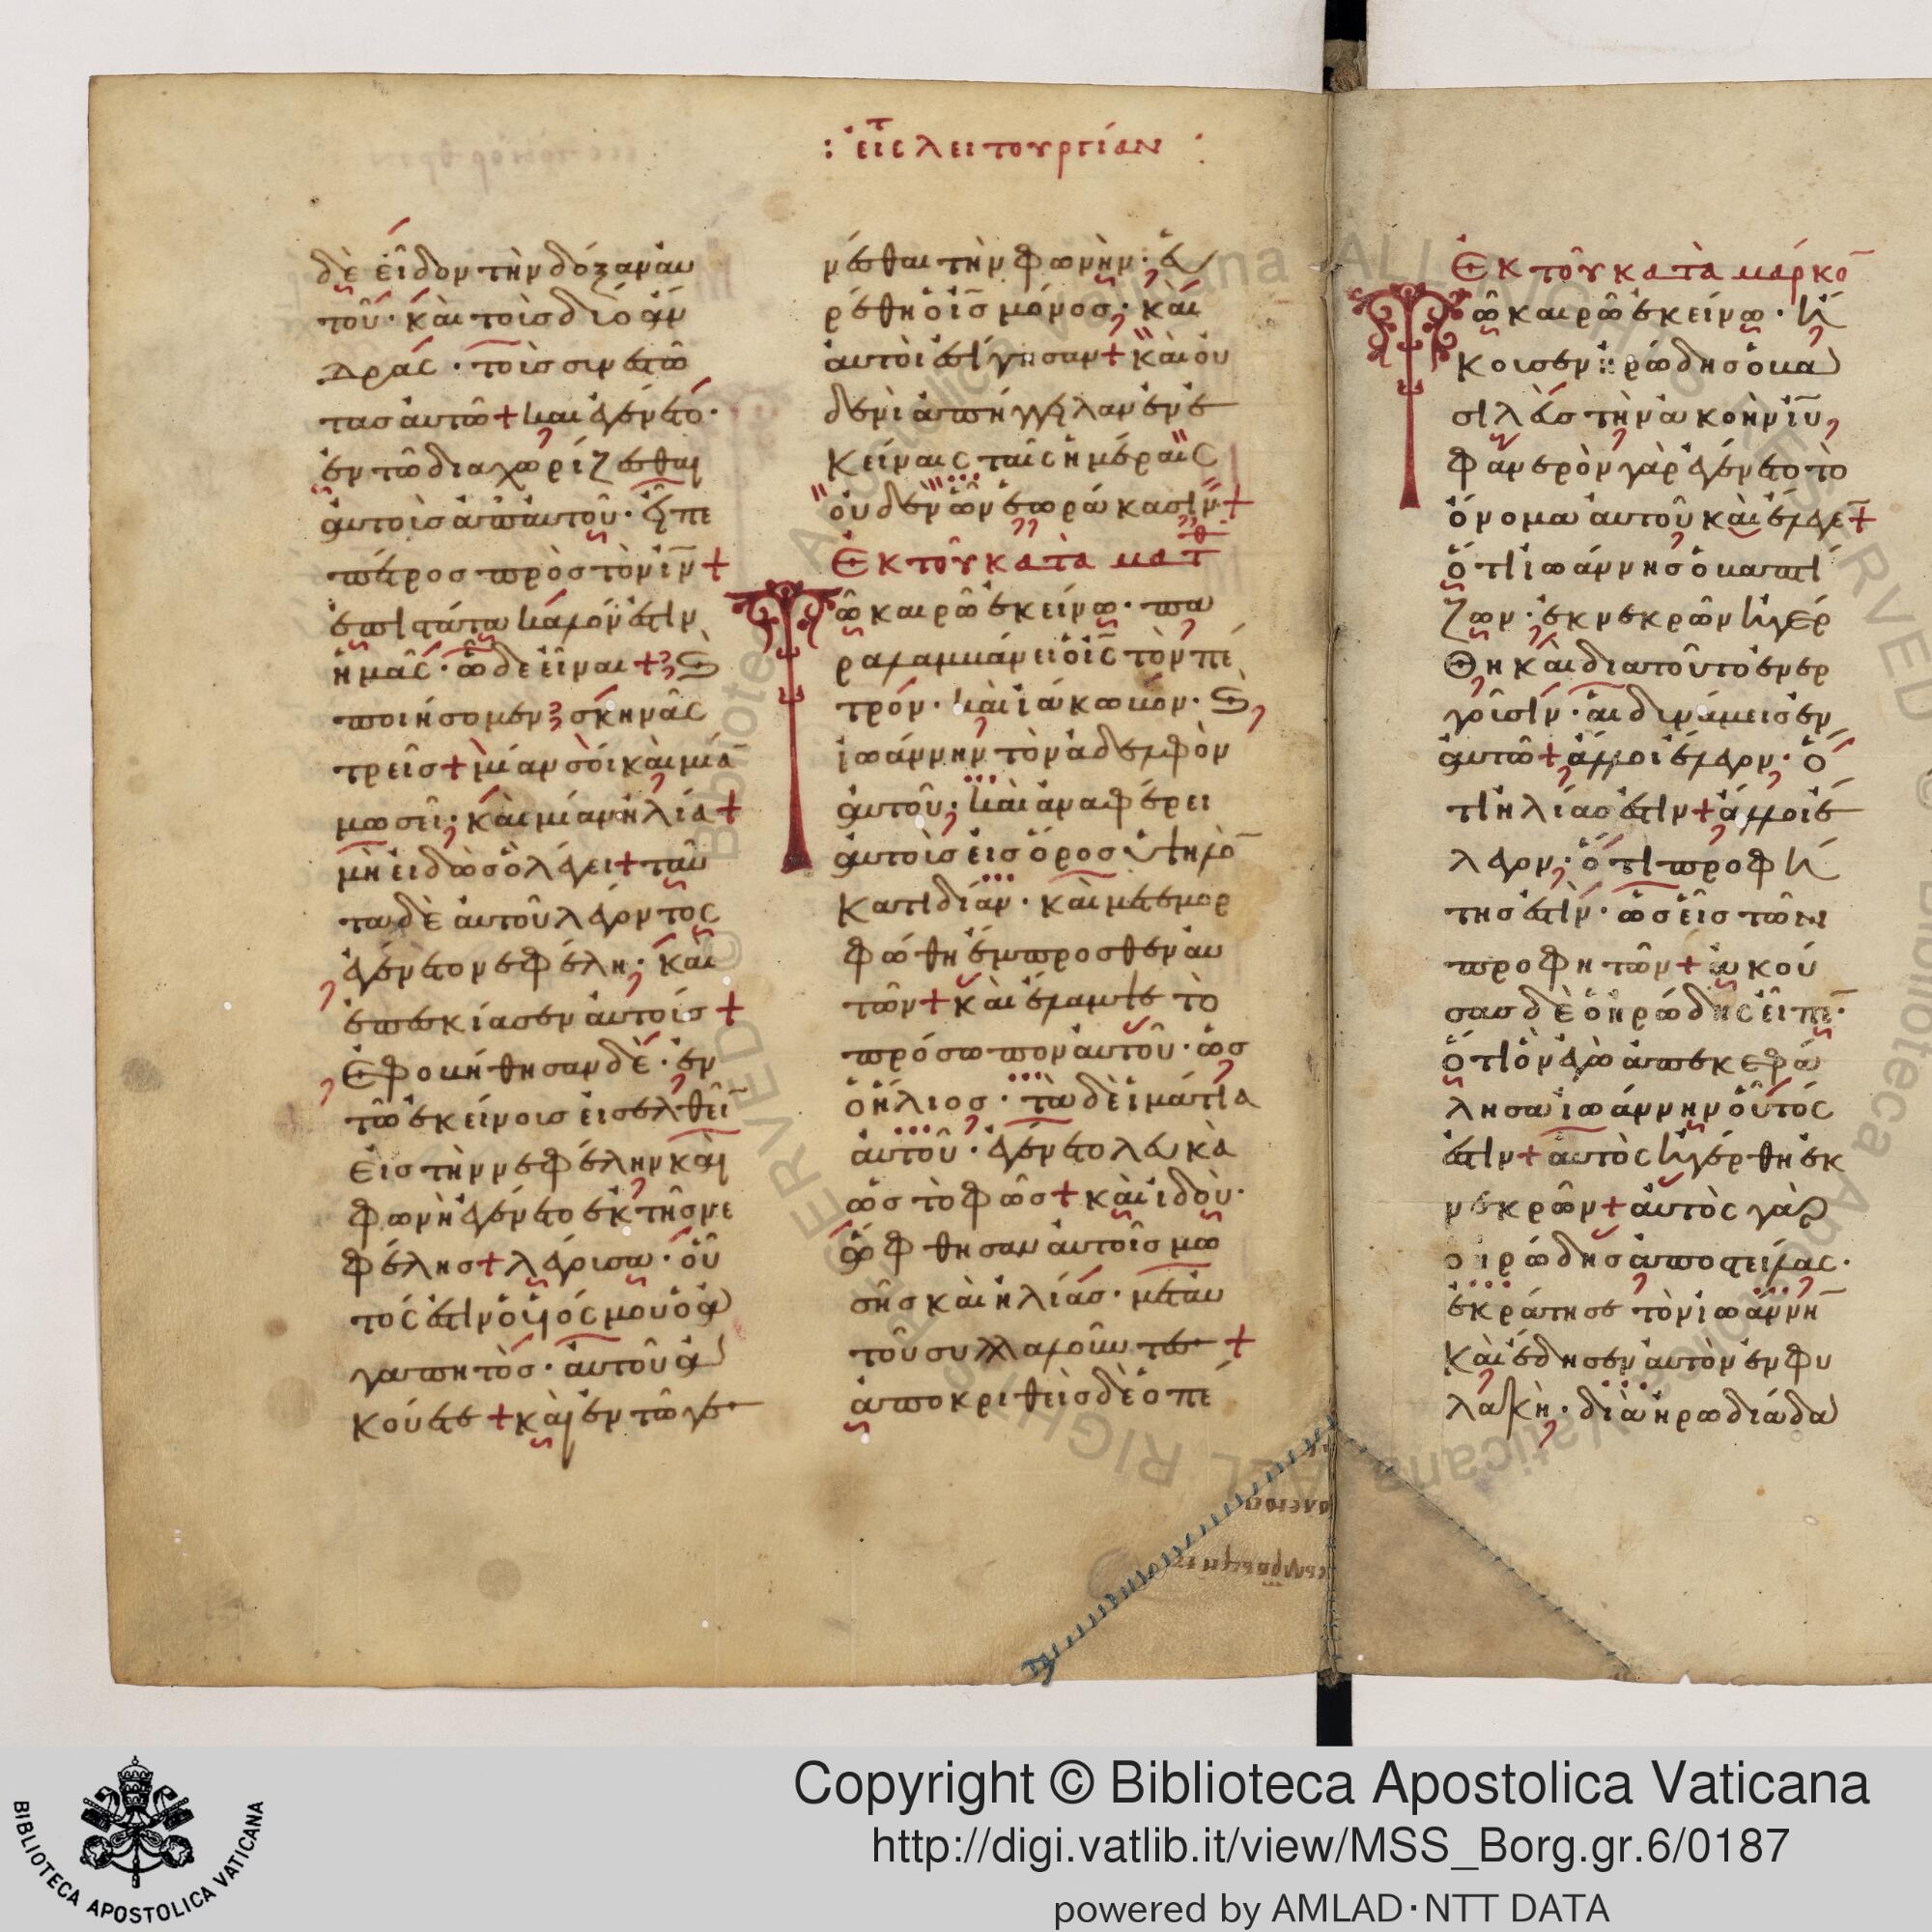 : εἰς τ λειτουργίαν :
δὲ εἶδον τὴν δόξαν αυ
τοῦ· καὶ τοῖς δύο ἄν
δρας· τοῖς συνεστῶ
τας αὐτῶ + καὶ ἐγένετο·
ἐν τῶ διαχωρίζεσθαι
αὐτοὺς ἀπ' αὐτοῦ· εἶπε
πέτρος πρὸς τὸν ἰν̄ +
ἐπιστάτα καλόν ἐστιν
ἡμᾶς· ὧδε εἶναι + ϛ
ποιήσομεν σκηνὰς
τρεῖς + μίαν σοὶ καὶ μίᾱ
μωσεῖ· καὶ μίαν ηλία +
μὴ εἰδὼς ὃ λέγει + ταῦ
τα δὲ αὐτοῦ λέγοντος
ἐγένετο νεφέλη· καὶ
ἐπεσκίασεν αὐτοῖς +
Ἐφοβήθησαν δὲ· ἐν
τῶ ἐκείνοις εἰσελθεῖ̄
εἰς τὴν νεφέλην καὶ
φωνὴ ἐγένετο ἐκ τῆς νε
φέλης + λέγουσα· οὗ
τός ἐστιν ὁ υἱός μου ὁ ἀ
γαπητός· αὐτοῦ ἀ
κούετε + καὶ ἐν τῶ γε
νέσθαι τὴν φωνὴν· εὑ
ρέθη ὁ ις̄ μόνος· καὶ
αὐτοὶ ἐσίγησαν + καὶ οὐ
δενὶ ἀπήγγειλαν ἐν ἐ
κείναις ταῖς ἡμέραις
οὐδὲν ὧν ἑωράκασιν +
Ἐκ τοῦ κατὰ ματθ
Τῶ καιρῶ ἐκείνω· πα
ραλαμβάνει ὁ ις̄ τὸν πέ
τρον· καὶ ἰάκωβον· ϛ
ἰωάννην τὸν ἀδελφὸν
αὐτοῦ· καὶ ἀναφέρει
αὐτοὺς εἰς ὄρος ὑψηλὸ̄
κατ' ἰδίαν· καὶ μετεμορ
φώθη ἔμπροσθεν αὐ
τῶν + καὶ ἔλαμψε τὸ
πρόσωπον αὐτοῦ· ὡς
ὁ ἥλιος· τὰ δὲ ἱμάτια
αὐτοῦ· ἐγένετο λευκὰ
ὡς τὸ φῶς + καὶ ἰδοὺ·
ὤφθησαν αὐτοῖς μω
σῆς καὶ ἠλίας· μετ' αυ
τοῦ συλλαλοῦντες +
ἀποκριθεὶς δὲ ὁ πέ
Ἐκ τοῦ κατὰ μάρκο̄
Τῶ καιρῶ ἐκείνω· ἤ
κουσεν ἡρώδης ὁ βα
σιλεὺς τὴν ἀκοὴν ἰῦ
φανερὸν γὰρ ἐγένετο τὸ
ὄνομα αὐτοῦ καὶ ἔλεγε +
ὅτι ἰωάννης ὁ βαπτί
ζων· ἐκ νεκρῶν ἠγέρ
θη καὶ διατοῦτο ἐνερ
γοῦσιν· αἱ δυνάμεις ἐν
αὐτῶ + ἄλλοι ἔλεγον· ὅ
τι ηλίας ἐστιν + ἄλλοι ἔ
λεγον· ὅτι προφή
της ἐστὶν· ὡς εἷς τῶν
προφητῶν + ἀκού
σας δὲ ὁ ἡρώδης εἶπε·
ὅτι ὃν ἐγὼ ἀπεκεφά
λησα ἰωάννην οὗτός
ἐστιν + αὐτὸς ἠγέρθη ἐκ
νεκρῶν + αὐτὸς γὰρ
ὁ ἡρώδης ἀποστείλας·
ἐκράτησε τὸν ἰωάννη̄
καὶ ἔδησεν αὐτὸν ἐν φυ
λακὴ· διὰ ἡρωδιάδα
Copyright © Biblioteca Apostolica Vaticana
http://digi.vatlib.it/view/MSS_Borg.gr.6/0187
powered by AMLAD·NTT DATA
BIBLIOTECA APOSTOLICA VATICANA